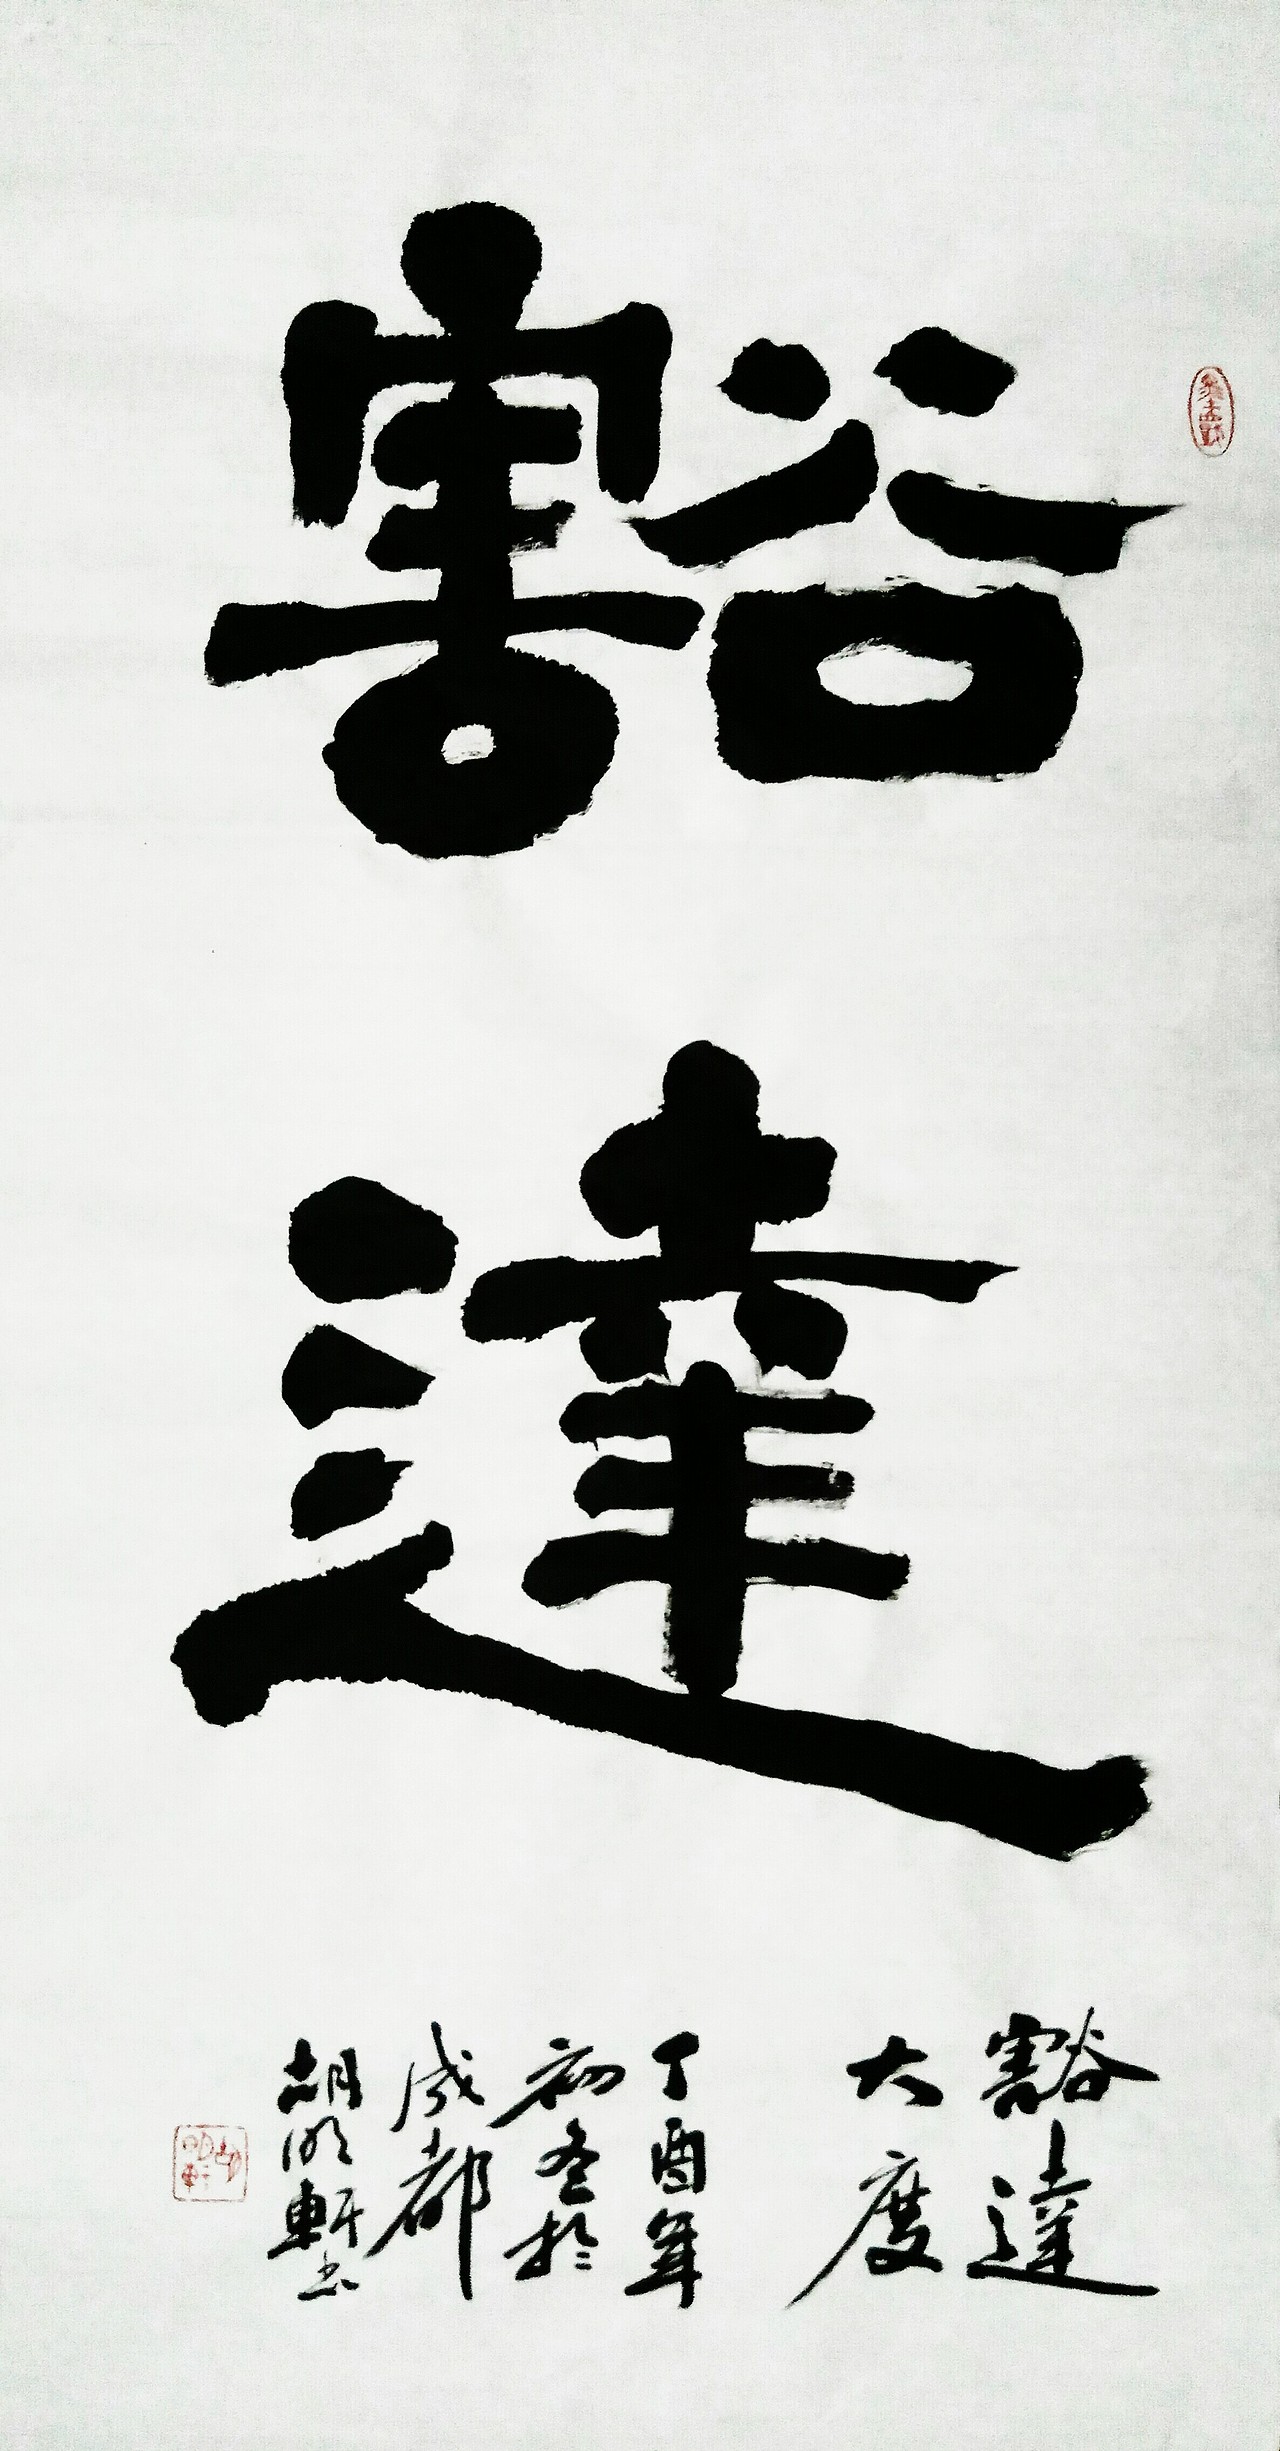 豁
達
豁達
大度
丁酉年
初冬於
成都
胡明軒书